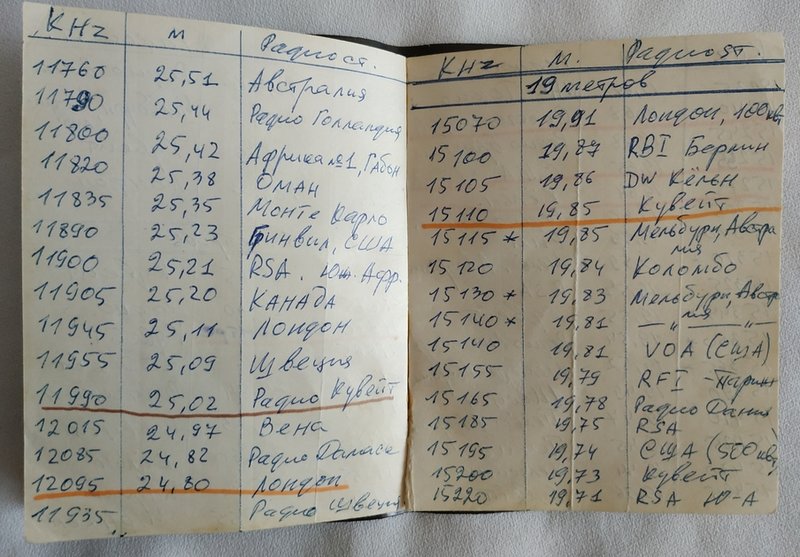 KHz м Радиост.
11760 25,51 Австралия
11790 25,44 Радио Голландия
11800 25,42 Африка №1, Габон
11820 25,38 Оман
11835 25,35 Монте Карло
11890 25,23 Гринвил, США
11900 25,21 RSA. Юж. Афр.
11905 25,20 Канада
11945 25,11 Лондон
11955 25,09 Швеция
11990 25,02 Радио Кувейт
12015 24,97 Вена
12085 24,82 Радио Дамаск
12095 24,80 Лондон
11935 Радио Швеция
KHz м. Радиост.
19 метров
15070 19,91 Лондон, 100 квт
15100 19,87 RBI Берлин
15105 19,86 DW Кёльн
15110 19,85 Кувейт
15115 * 19,85 Мельбурн, Австра
лия
15120 19,84 Коломбо
15130 * 19,83 Мельбурн, Австр
лия
15140 * 19,81 — „ — — „ —
15140 19,81 VOA (США)
15155 19,79 RFI - Париж
15165 19,78 Радио Дания
15185 19,75 RSA
15195 19,74 США (500 квт)
15200 19,73 Кувейт
15220 19,71 RSA Ю-А